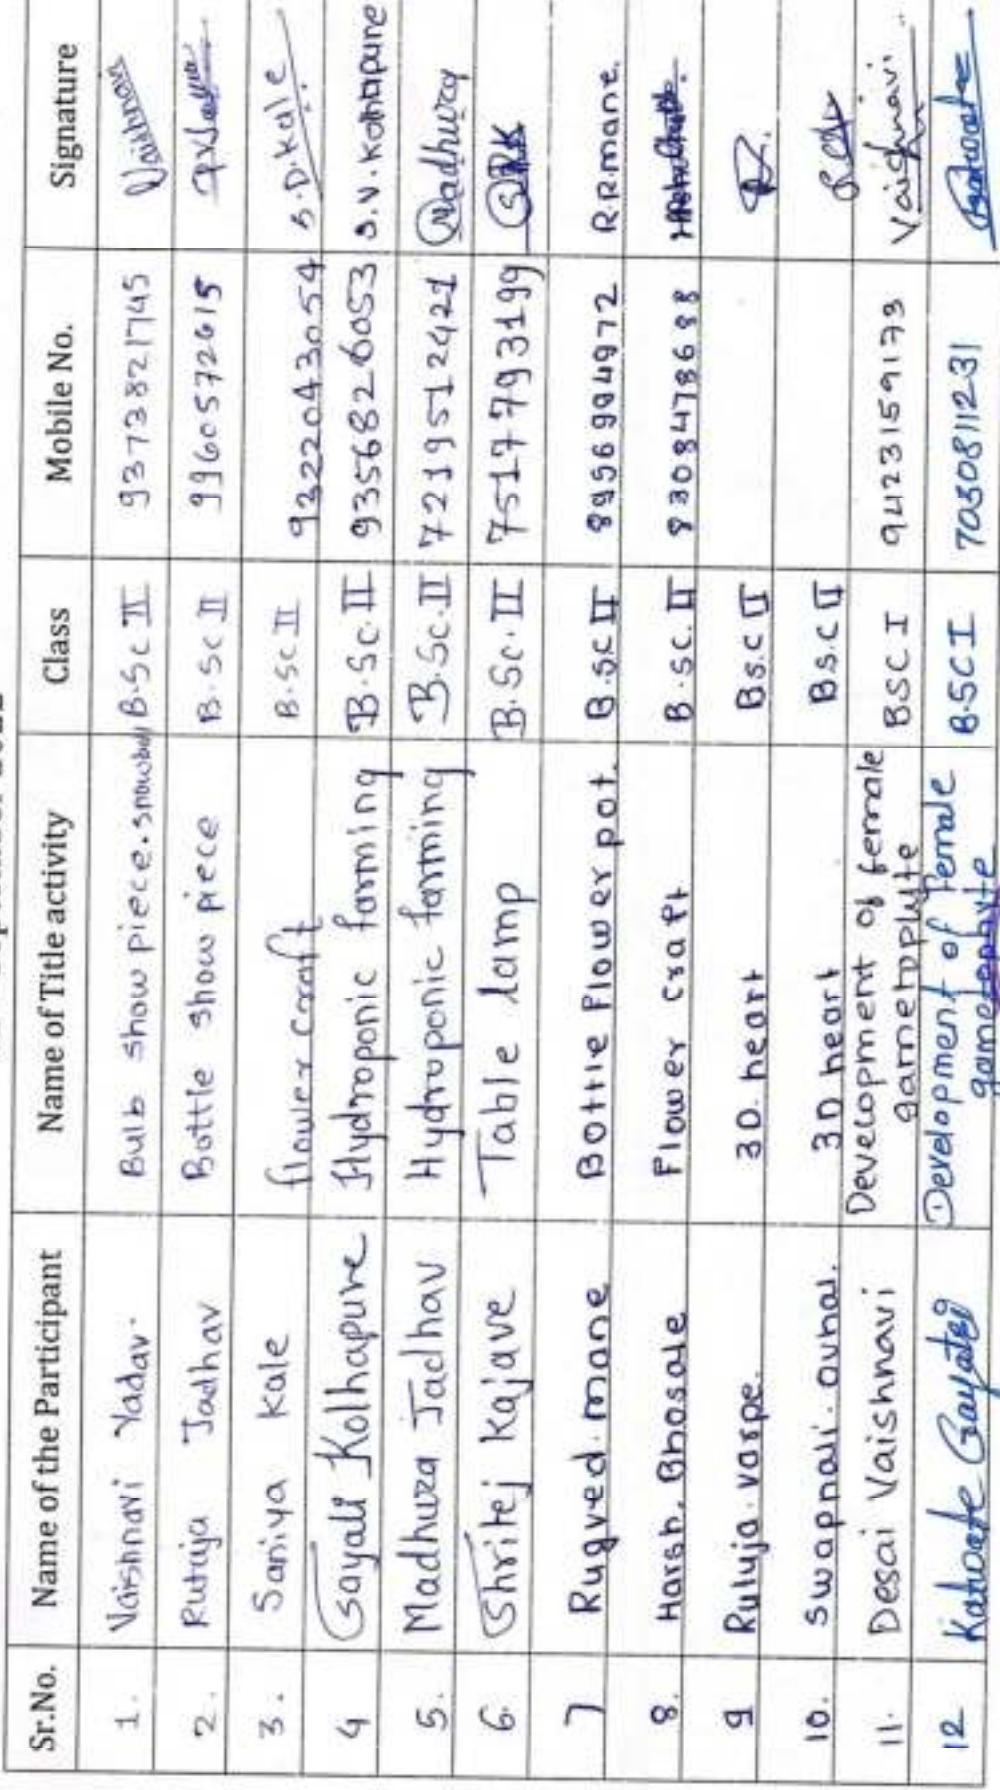 Sr.No. Name of the Participant Name of Title activity Class Mobile No. Signature
1. Vaishnavi Yadav. Bulb show piece. snowball B.Sc II 9373821745 Vaishnavi
2. Rutuja Jadhav Bottle show piece B.Sc II 9960572615
3. Saniya Kale flower craft B.Sc II 9322043054 S.D.Kale
4 Sayali Kolhapure Hydroponic farming B.Sc.II 9356826053 S.V.Kolhapure
5. Madhura Jadhav Hydroponic farming B.Sc.II 7219512421 Madhuraj
6. Shritej Kajave Table lamp B.Sc.II 7517793199 SRK
7 Rugved.mane Bottle flower pot. B.SC II 8956994972 R.R.mane.
8. Harsh. Bhosale Flower craft B.SC.II 9308478688
9 Rutuja.varpe. 3D.heart BS.C II
10. Swapnali.avhad. 3D heart BS.C II
11. Desai Vaishnavi Development of female BSC I 9423159173 Vaishnavi
gametophyte
12 Katwate Gayatri Development of Female B.SC I 7030811231
gametophyte